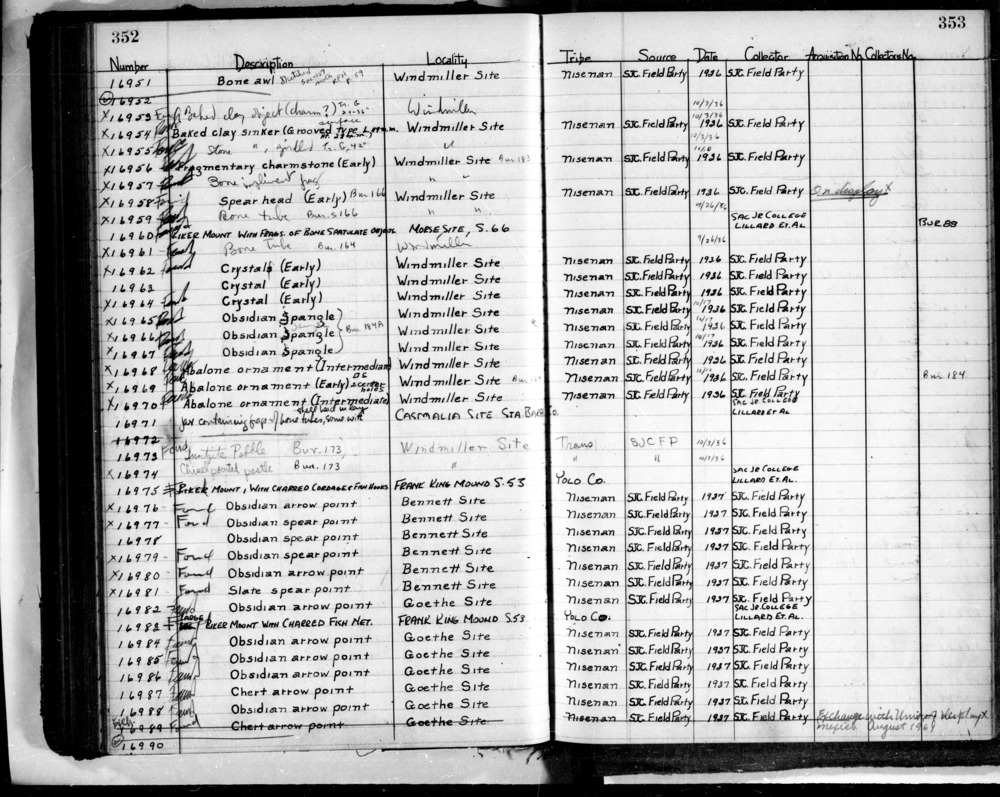 352
353
Number Description Locality Tribe Source Date Collector Acquisition No. Collectors No.
16951 Bone awl Windmiller Site Nisenan SJC. Field Party 1936 SJC. Field Party
16952
X16953 Baked clay object (charm?) Tr. G Windmiller 10/3/36
X16954 Baked clay sinker (Grooved Type surface Windmiller Site Nisenan SJC. Field Party 10/3/36 1936 SJC. Field Party
X16955 Stone " , girdled Tr. G, 42" "
X16956 Fragmentary charmstone (Early) Windmiller Site Bur. 183 Nisenan SJC. Field Party 1936 SJC. Field Party
X16957 Bone implement frag " "
X16958 Spear head (Early) Bur 166 Windmiller Site Nisenan SJC. Field Party 1936 SJC. Field Party On display X
X16959 Bone tube Bur. 166 " " 10/26/36
16960 RIKER MOUNT WITH FRAGS. OF BONE SPATULATE OBJECT MORSE SITE, S. 66 SAC JR COLLEGE LILLARD ET. AL. BUR BB
X16961 Bone Tube Bur. 164 Windmiller 9/26/36
X16962 Found Crystals (Early) Windmiller Site Nisenan SJC. Field Party 1936 SJC. Field Party
16963 Crystal (Early) Windmiller Site Nisenan SJC. Field Party 1936 SJC. Field Party
X16964 Crystal (Early) Windmiller Site Nisenan SJC. Field Party 1936 SJC. Field Party
X16965 Obsidian Spangle Windmiller Site Nisenan SJC. Field Party 10/17 1936 SJC. Field Party
X16966 Obsidian Spangle Bur 184A Windmiller Site Nisenan SJC. Field Party 10/17 1936 SJC. Field Party
X16967 Obsidian Spangle Windmiller Site Nisenan SJC. Field Party 10/17 1936 SJC. Field Party
X16968 Abalone ornament (Intermediate) Windmiller Site Nisenan SJC. Field Party 1936 SJC. Field Party
X16969 Abalone ornament (Early) 2 center holes Windmiller Site Nisenan SJC. Field Party 1936 SJC. Field Party Bur. 184
X16970 Abalone ornament (Intermediate) Windmiller Site Nisenan SJC. Field Party 1936 SJC. Field Party
16971 Jar containing frags of bone tubes, some with shell bead inlay CASMALIA SITE STA. BARB. CO. SAC JR COLLEGE LILLARD ET AL
16972
16973 Found Pebble Bur. 173 Windmiller Site SJCFP 10/3/36
X16974 Chisel pointed pestle Bur. 173 " " "
16975 RIKER MOUNT, WITH CHARRED CORDAGE & FISH HOOKS FRANK KING MOUND S. 53 YOLO CO. SAC JR COLLEGE LILLARD ET. AL.
X16976 Found Obsidian arrow point Bennett Site Nisenan SJC. Field Party 1937 SJC. Field Party
X16977 Found Obsidian spear point Bennett Site Nisenan SJC. Field Party 1937 SJC. Field Party
16978 Obsidian spear point Bennett Site Nisenan SJC. Field Party 1937 SJC. Field Party
X16979 Found Obsidian spear point Bennett Site Nisenan SJC. Field Party 1937 SJC. Field Party
X16980 Found Obsidian arrow point Bennett Site Nisenan SJC. Field Party 1937 SJC. Field Party
X16981 Found Slate spear point Bennett Site Nisenan SJC. Field Party 1937 SJC. Field Party
16982 Found Obsidian arrow point Goethe Site Nisenan SJC. Field Party 1937 SJC. Field Party
16983 LARGE RIKER MOUNT WITH CHARRED FISH NET. FRANK KING MOUND S. 53 YOLO CO. SAC JR. COLLEGE LILLARD ET. AL.
16984 Found Obsidian arrow point Goethe Site Nisenan SJC. Field Party 1937 SJC. Field Party
16985 Found Obsidian arrow point Goethe Site Nisenan SJC. Field Party 1937 SJC. Field Party
16986 Found Obsidian arrow point Goethe Site Nisenan SJC. Field Party 1937 SJC. Field Party
16987 Found Chert arrow point Goethe Site Nisenan SJC. Field Party 1937 SJC. Field Party
16988 Found Obsidian arrow point Goethe Site Nisenan SJC. Field Party 1937 SJC. Field Party
16989 Found Chert arrow point Goethe Site Nisenan SJC. Field Party 1937 SJC. Field Party Exchange with Univ. of Mexico August 1969
16990